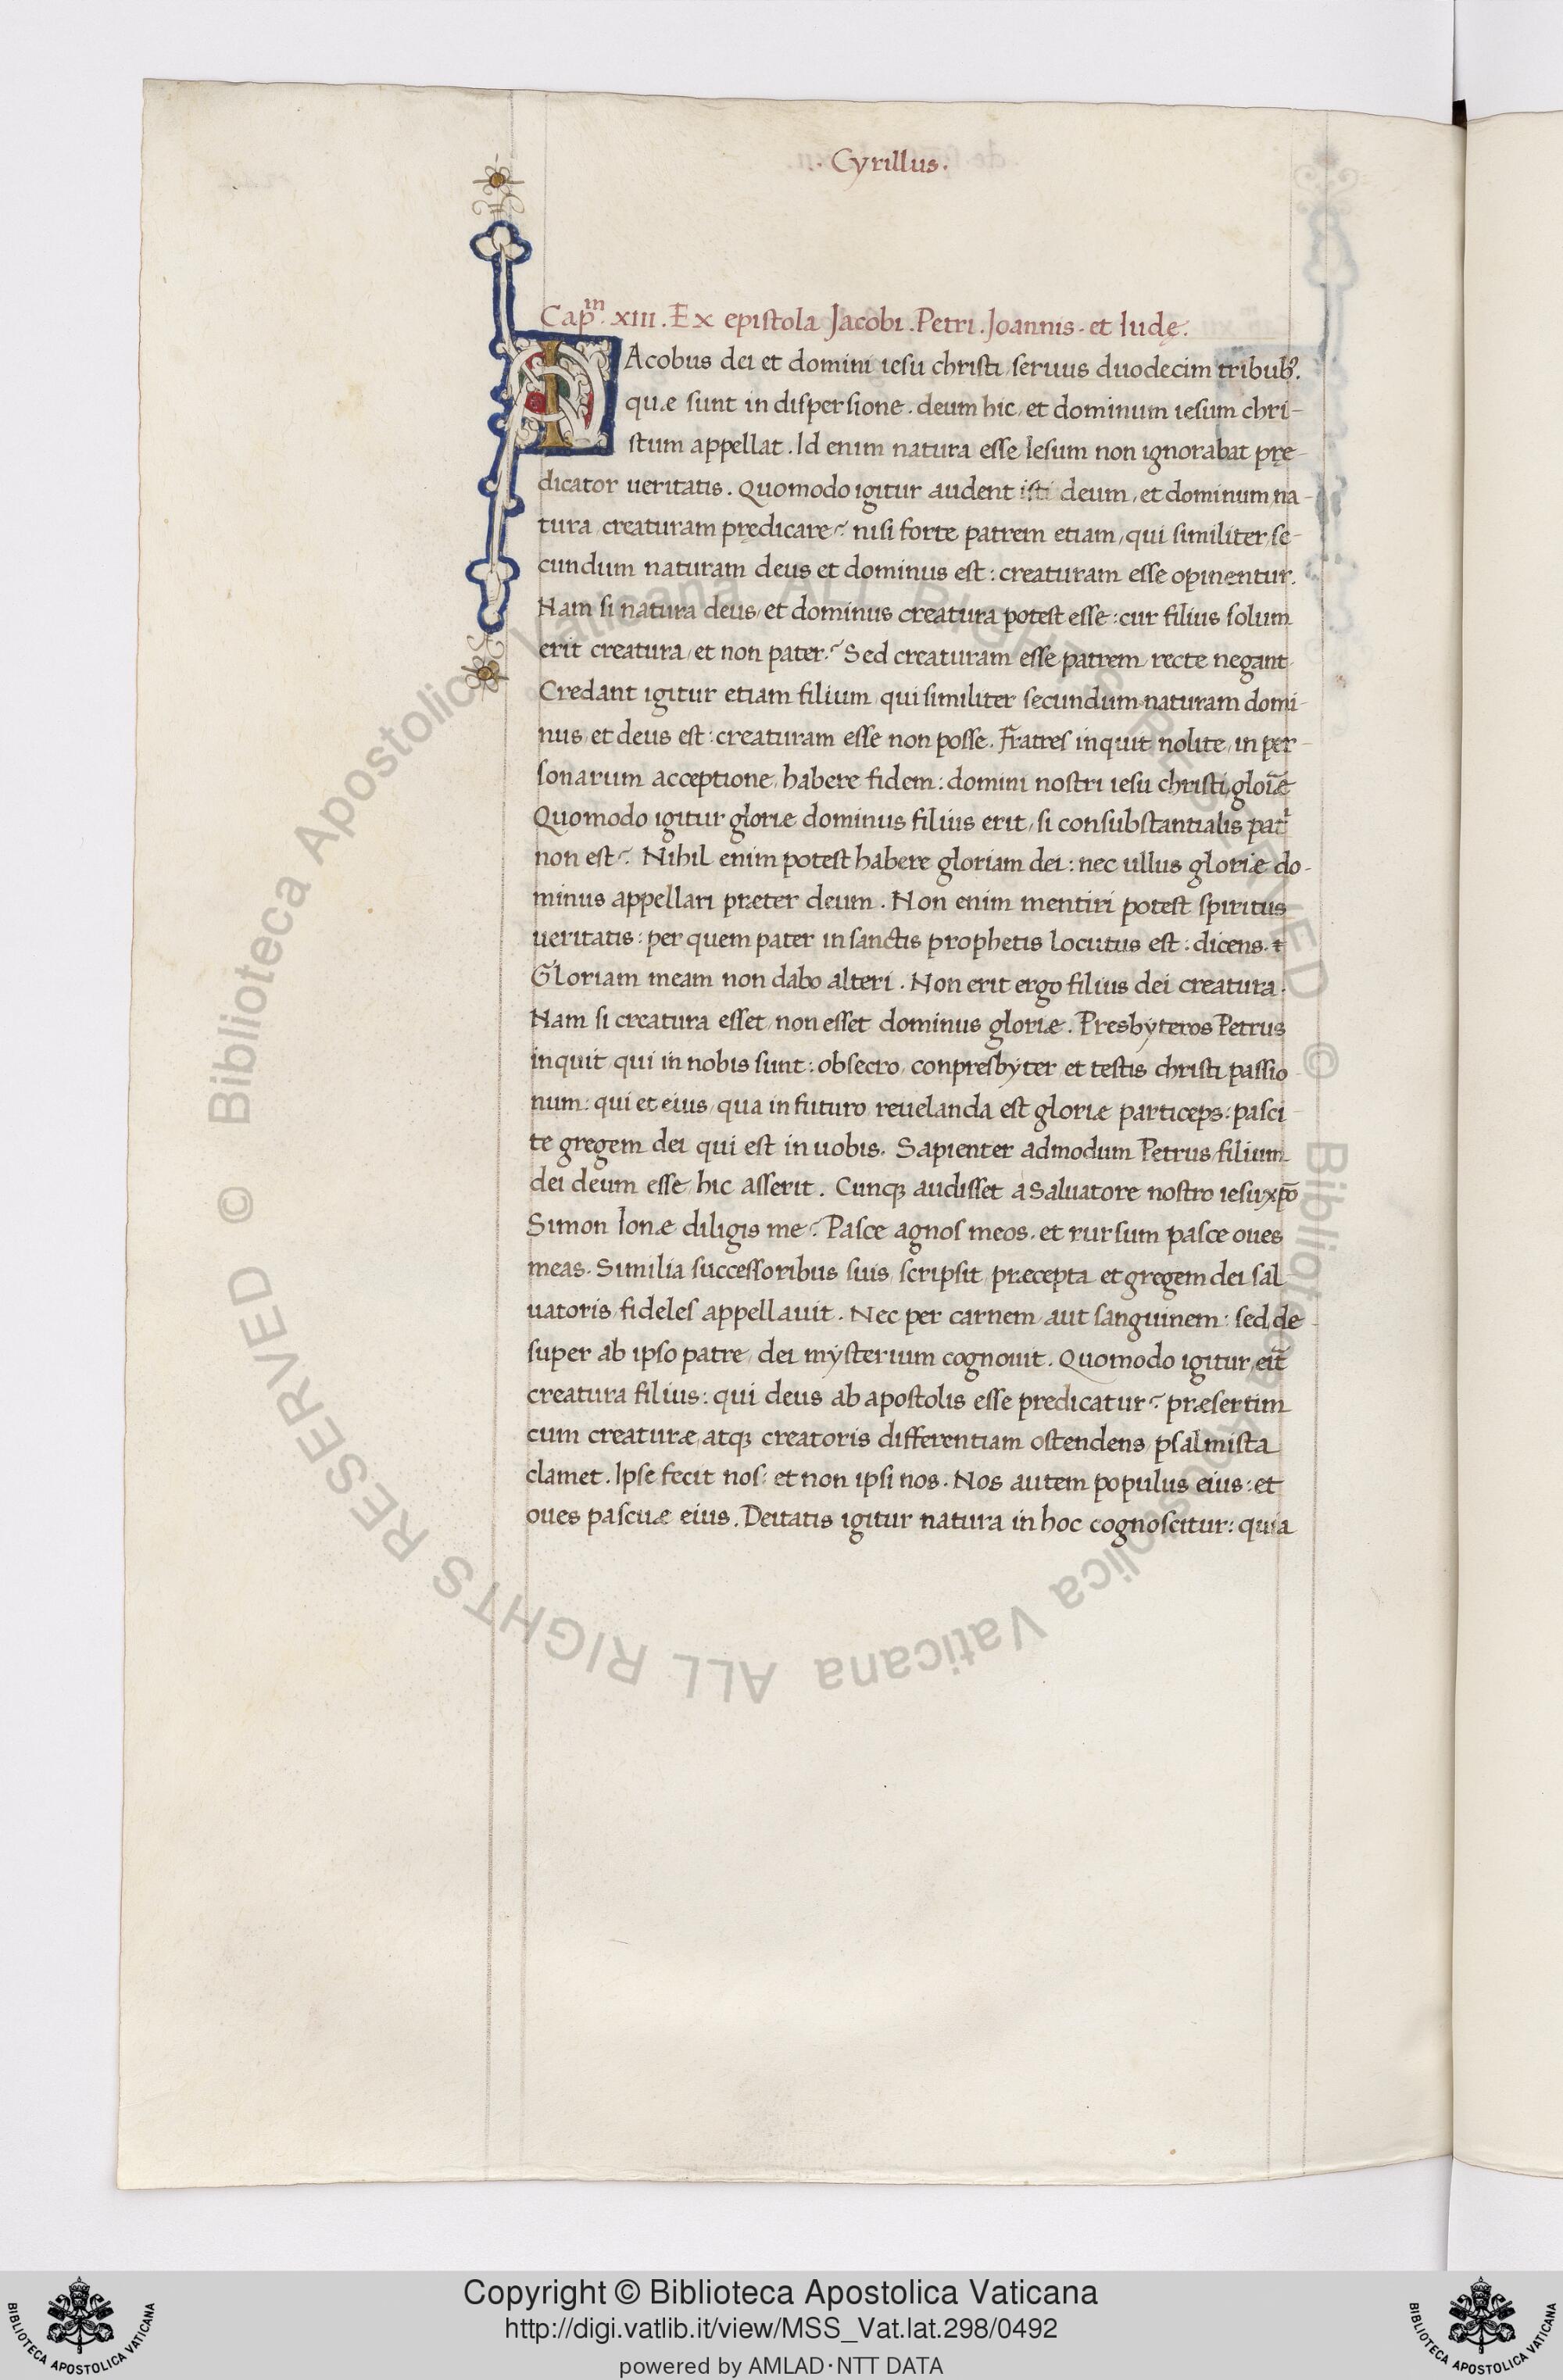 . Cyrillus .
Cap.m XIII. Ex epistola Jacobi. Petri. Joannis. et Iudę.
IAcobus dei et domini iesu christi seruus duodecim tribub9.
quæ sunt in dispersione. deum hic, et dominum iesum chri-
stum appellat. Id enim natura esse Iesum non ignorabat prę-
dicator ueritatis. Quomodo igitur audent isti deum, et dominum na-
tura creaturam prędicare? nisi forte patrem etiam, qui similiter se-
cundum naturam deus et dominus est: creaturam esse opinentur.
Nam si natura deus, et dominus creatura potest esse: cur filius solum
erit creatura, et non pater? Sed creaturam esse patrem recte negant.
Credant igitur etiam filium qui similiter secundum naturam domi-
nus, et deus est: creaturam esse non posse. Fratres inquit nolite, in per-
sonarum acceptione, habere fidem: domini nostri iesu christi gloīæ
Quomodo igitur gloriæ dominus filius erit, si consubstantialis patⁱ
non est? Nihil enim potest habere gloriam dei: nec ullus gloriæ do-
minus appellari præter deum. Non enim mentiri potest spiritus
ueritatis: per quem pater in sanctis prophetis locutus est: dicens.
Gloriam meam non dabo alteri. Non erit ergo filius dei creatura.
Nam si creatura esset, non esset dominus gloriæ. Presbyteros Petrus
inquit, qui in nobis sunt: obsecro, conpresbyter et testis christi passio
num: qui et eius, qua in futuro reuelanda est gloriæ particeps: pasci-
te gregem dei qui est in uobis. Sapienter admodum Petrus, filium
dei deum esse, hic asserit. Cunqꝫ audisset a Saluatore nostro iesu xp̄o
Simon Ionæ diligis me? Pasce agnos meos. et rursum pasce oues
meas. Similia successoribus suis scripsit præcepta et gregem dei sal
uatoris fideles appellauit. Nec per carnem aut sanguinem: sed de-
super ab ipso patre, dei mysterium cognouit. Quomodo igitur eīt
creatura filius: qui deus ab apostolis esse predicatur? præsertim
cum creaturæ, atqꝫ creatoris differentiam ostendens psalmista
clamet. Ipse fecit nos: et non ipsi nos. Nos autem populus eius: et
oues pascuæ eius. Deitatis igitur natura in hoc cognoscitur: quia
© Biblioteca Apostolica Vaticana ALL RIGHTS RESERVED © Biblioteca Apostolica Vaticana ALL RIGHTS RESERVED
Copyright © Biblioteca Apostolica Vaticana
http://digi.vatlib.it/view/MSS_Vat.lat.298/0492
powered by AMLAD·NTT DATA
BIBLIOTECA APOSTOLICA VATICANA
BIBLIOTECA APOSTOLICA VATICANA